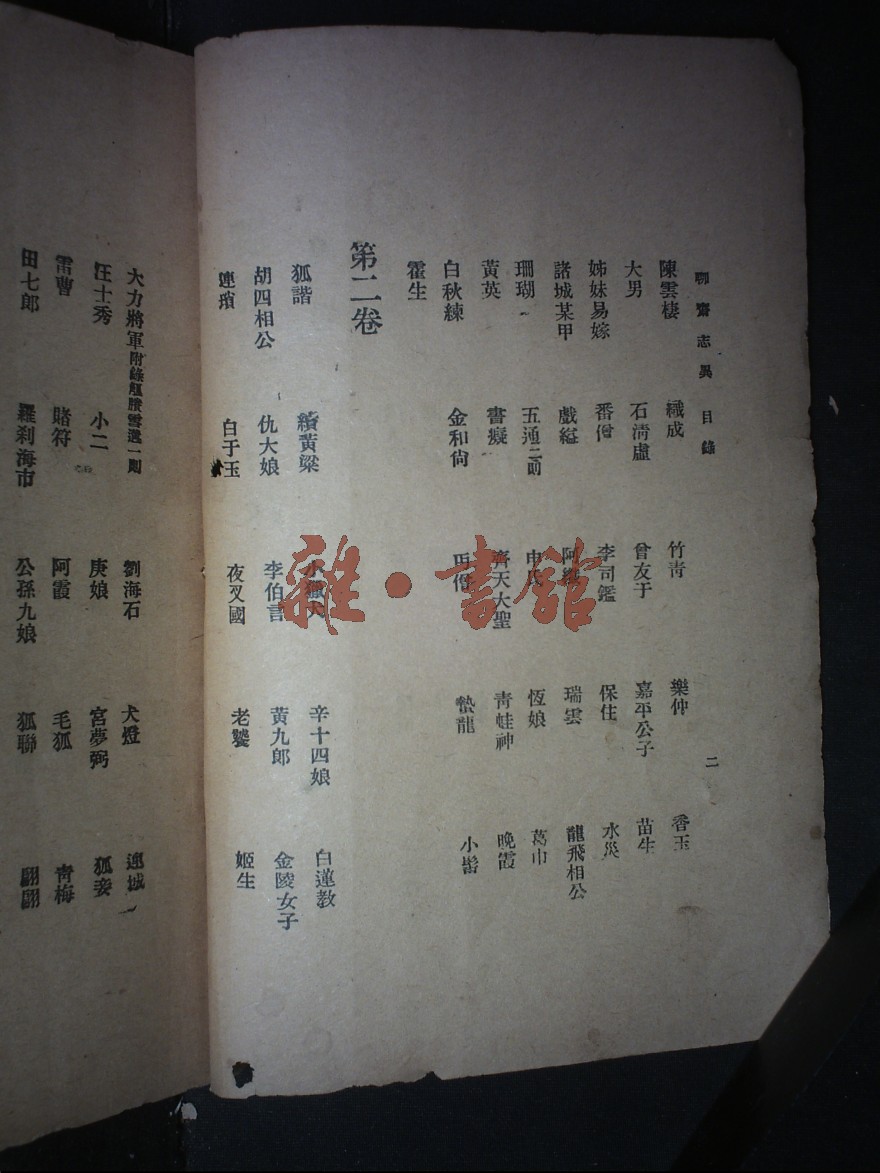 聊齋志異 目錄 二
陳雲棲 織成 竹青 樂仲 香玉
大男 石清虛 曾友于 嘉平公子 苗生
姊妹易嫁 番僧 李司鑑 保住 水災
諸城某甲 戲縊 阿纖 瑞雲 龍飛相公
珊瑚 五通二則 申氏 恆娘 葛巾
黃英 書癡 齊天大聖 青蛙神 晚霞
白秋練 金和尚 丐僧 蟄龍 小髻
霍生
第二卷
狐諧 續黃粱 小獵犬 辛十四娘 白蓮教
胡四相公 仇大娘 李伯言 黃九郎 金陵女子
連瑣 白于玉 夜叉國 老饕 姬生
大力將軍附錄觚賸雪遘一則 劉海石 犬燈 連城
汪士秀 小二 庚娘 宮夢弼 狐妾
雷曹 賭符 阿霞 毛狐 青梅
田七郎 羅刹海市 公孫九娘 狐聯 翩翩
雜·書館